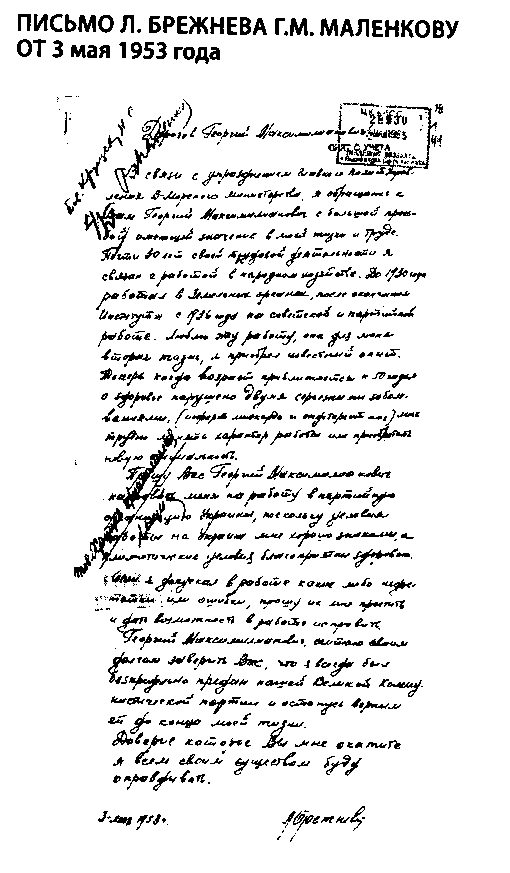 ПИСЬМО Л. БРЕЖНЕВА Г.М. МАЛЕНКОВУ
ОТ 3 мая 1953 года
Дорогой Георгий Максимилианович
связи с упразднением Главного Политуправ-
ления В-Морского Министерства, я обращаюсь к
Вам Георгий Максимилианович с большой прось-
бой имеющей значение в моей жизни и труде.
Почти 30 лет своей трудовой деятельности я
связан с работой в народном хозяйстве. До 1930 года
работал в Земельных органах, после окончания
Института с 1936 года на советской и партийной
работе. Люблю эту работу, она для меня
вторая жизнь, я приобрел известный опыт.
Теперь когда возраст приближается к 50 годам
а здоровье нарушено двумя серьезными заболе-
ваниями, (инфаркт миокарда и эндартериит ног) мне
трудно менять характер работы или приобретать
новую специальность.
Прошу Вас Георгий Максимилианович
меня на работу в партийную
организацию Украины, поскольку условия
работы на Украине мне хорошо знакомы, а
климатические условия благоприятны здоровью.
Если я допускал в работе какие либо недос-
татки или ошибки, прошу их мне простить
и дать возможность в работе исправить.
Георгий Максимилианович, считаю своим
долгом заверить Вас, что я всегда был
безпредельно предан нашей Великой Комму-
нистической партии и останусь верным
ей до конца моей жизни.
Доверие которое Вы мне окажите
я всем своим существом буду
оправдывать.
3 мая 1953 г. ЛБрежнев